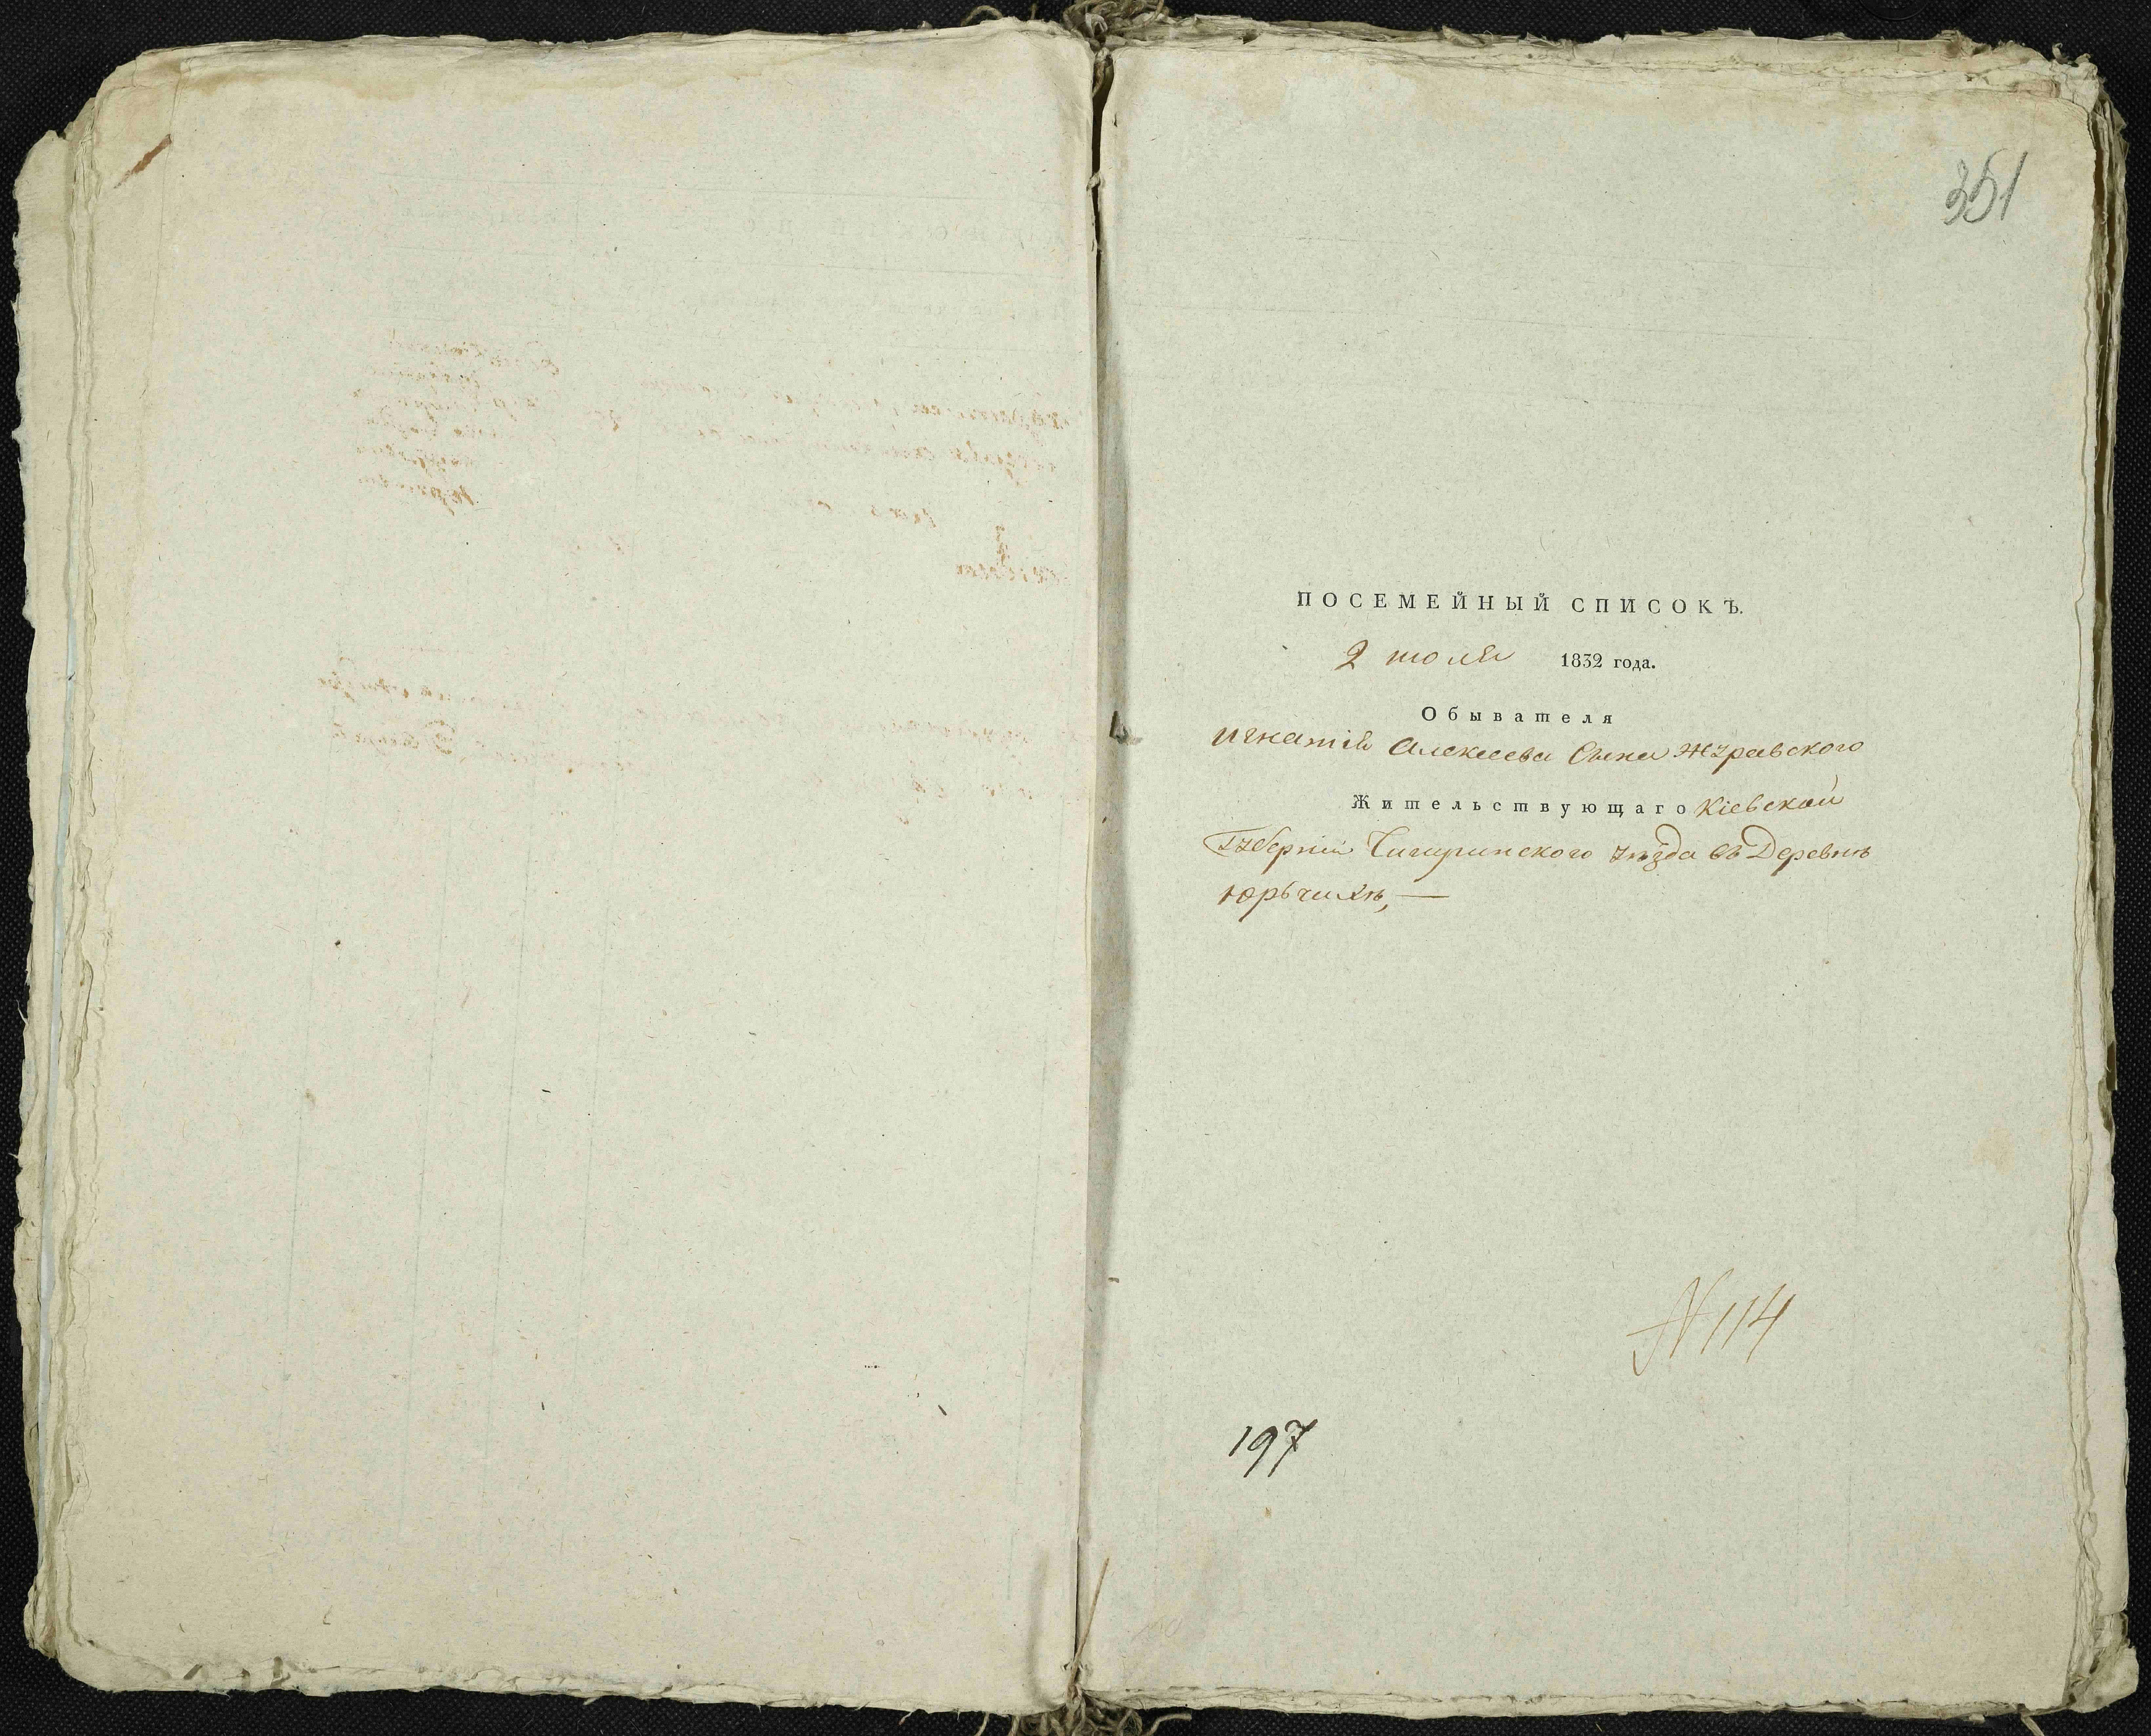 351
ПОСЕМЕЙНЫЙ СПИСОКЪ.
2 июля 1832 года.
Обывателя
Игнатія Алексеева Сына Журавского
Жительствующаго Кіевской
Губерніи Чигиринского уѣзда въ Деревнѣ
Юрьчихѣ, —
№ 114
197